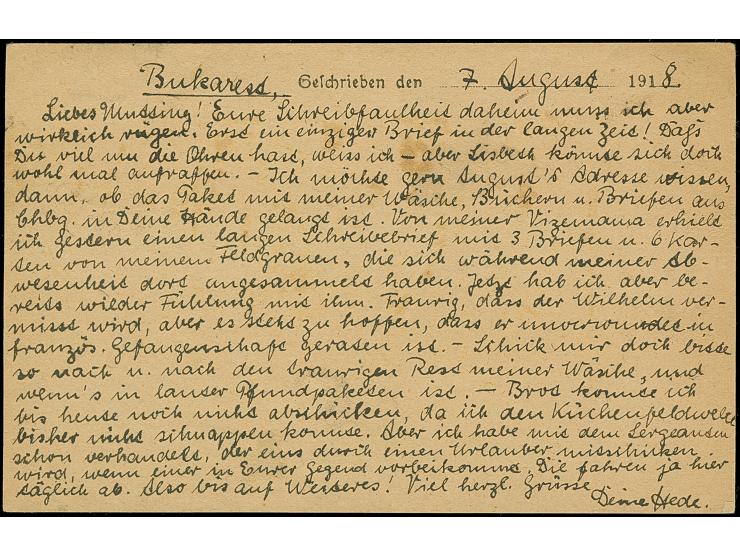 Bukarest, Geschrieben den 7. August 1918
Liebes Mutting! Eure Schreibfaulheit daheim muss ich aber
wirklich rügen. Erst ein einziger Brief in der langen Zeit! Dass
Du viel um die Ohren hast, weiss ich – aber Lisbeth könnte sich doch
wohl mal aufraffen. – Ich möchte gern August's Adresse wissen,
dann, ob das Paket mit meiner Wäsche, Büchern u. Briefen aus
Chbg. in Deine Hände gelangt ist. Von meiner Vizemama erhielt
ich gestern einen langen Schreibebrief mit 3 Briefen u. 6 Kar-
ten von meinem Feldgrauen, die sich während meiner Ab-
wesenheit dort angesammelt haben. Jetzt hab ich aber be-
reits wieder Fühlung mit ihm. Traurig, dass der Wilhelm ver-
misst wird, aber es steht zu hoffen, dass er unverwundet in
französ. Gefangenschaft geraten ist. – Schick mir doch bitte
so nach u. nach den traurigen Rest meiner Wäsche, und
wenn's in lauter Pfundpaketen ist. – Brot konnte ich
bis heute noch nicht abschicken, da ich den Küchenfeldwebel
bisher nicht schnappen konnte. Aber ich habe mit dem Sergeanten
schon verhandelt, der eins durch einen Urlauber mitschicken
wird, wenn einer in Eurer Gegend vorbeikommt. Die fahren ja hier
täglich ab. Also bis auf Weiteres! Viel herzl. Grüsse
Deine Hede.